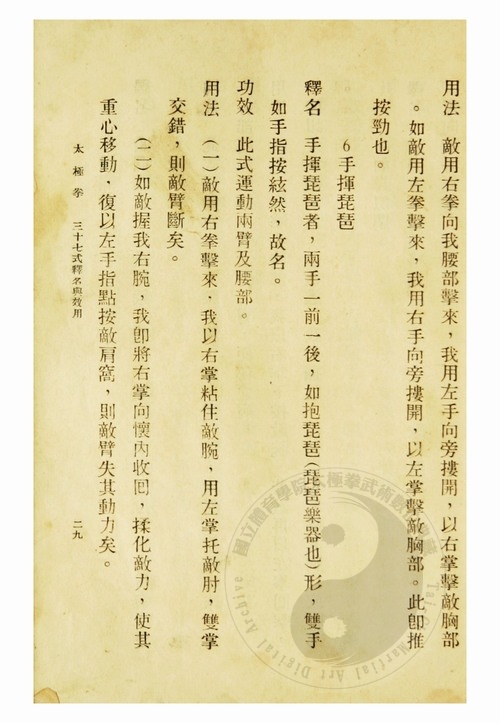 用法　敵用右拳向我腰部擊來，我用左手向旁摟開，以右掌擊敵胸部
。如敵用左拳擊來，我用右手向旁摟開，以左掌擊敵胸部。此卽推
按勁也。
6手揮琵琶
釋名　手揮琵琶者，兩手一前一後，如抱琵琶（琵琶樂器也）形，雙手
如手指按絃然，故名。
功效　此式運動兩臂及腰部。
用法　（一）敵用右拳擊來．我以右掌粘住敵腕，用左掌托敵肘，雙掌
交錯，則敵臂斷矣。
（二）如敵握我右腕，我卽將右掌向懷內收回，揉化敵力，使其
重心移動，復以左手指點按敵肩窩，則敵臂失其動力矣。
太極拳　三十七式釋名與效用
二九
國立體育學院太極拳武術數
Tai
Martial Art Digital Archive